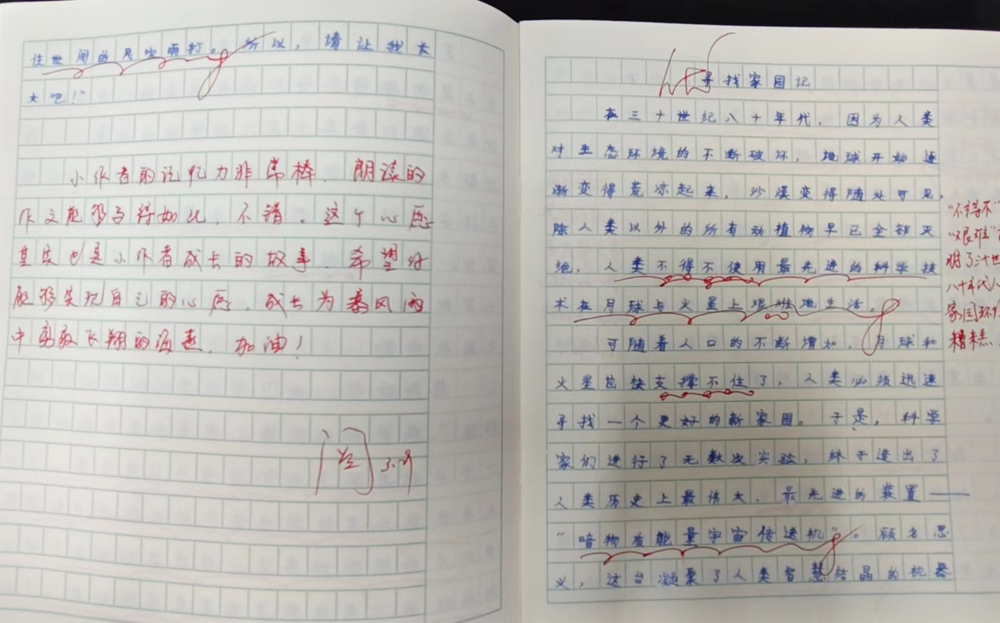 住世间的风吹雨打。所以，请让我长
大吧！"
小作者的记忆力非常棒，朗读的
作文能够写得如此，不错。这个心愿
其实也是小作者成长的故事，希望你
能够实现自己的心愿，成长为暴风雨
中勇敢飞翔的海燕，加油！
阅 3.9
寻找家园记
在三十世纪八十年代，因为人类
对生态环境的不断破坏，地球开始逐
渐变得荒凉起来，沙漠变得随处可见，
除人类以外的所有动植物早已全部灭
绝，人类不得不使用最先进的科学技
术在月球与火星上艰难地生活。
可随着人口的不断增加，月球和
火星也快支撑不住了，人类必须迅速
寻找一个更好的新家园。于是，科学
家们进行了无数次实验，终于造出了
人类历史上最伟大、最先进的装置——
"暗物质能量宇宙传送机"。顾名思
义，这台凝聚了人类智慧结晶的机器
"不得不"
"艰难"
明了三十世
八十年代人
家园环
糟糕